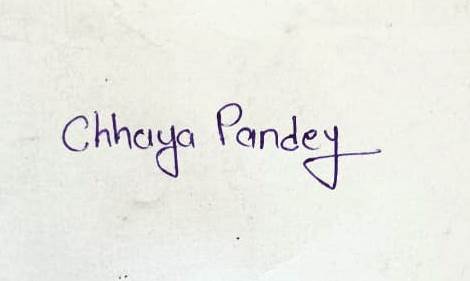 Chhaya Pandey